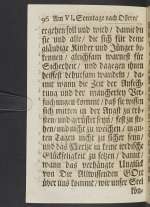 96 Am VI. Sonntage nach Ostern/
ergehen soll und wird / damit du
sie und alle / die sich für deine
gläubige Kinder und Jünger be-
kennen / gleichsam warnest für
Sicherheit / und dagegen ihnen
bestest behutsam wandeln / da-
mit wann die Zeit der Anfech-
tung und der mancherley Ver-
suchungen kommt / daß sie wissen
sich mitten in der Angst zu trö-
sten und gerüstet seyn / fest zu ste-
hen / und nicht zu weichen / in gu-
ten Tagen nicht zu sicher seyn /
und das Hertze in keine weltliche
Glückseligkeit zu setzen / damit /
wann das verhängte Unglück
von Dir Allwissenden GOtt
über uns komme / wir unser Seel